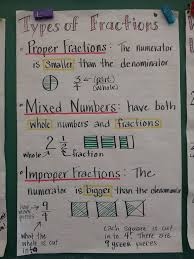 Types of Fractions
• Proper Fractions: The numerator
is smaller than the denominator
3/4 (part)
(whole)
• Mixed Numbers: have both
whole numbers and fractions
whole 2 fraction
• Improper Fractions: The
numerator is bigger than the denominator
9/4
what
the
whole
is cut
into
each square is cut
into 4. There are
9 green pieces